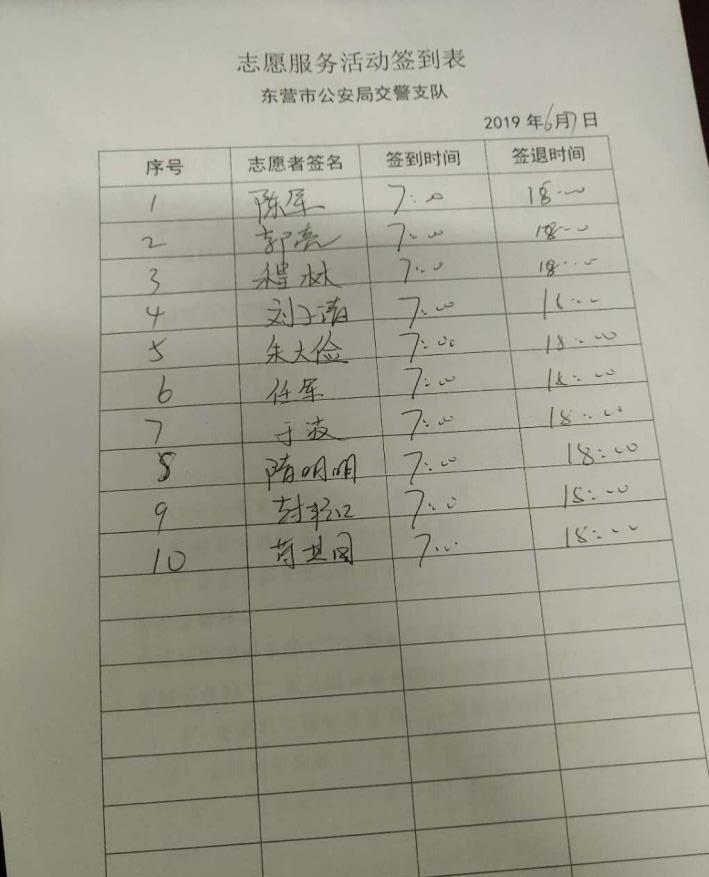 志愿服务活动签到表
东营市公安局交警支队
2019年6月7日
序号 志愿者签名 签到时间 签退时间
1 陈军 7:00 18:00
2 郭亮 7:00 18:00
3 程林 7:00 18:00
4 刘子涛 7:00 18:00
5 朱大俭 7:00 18:00
6 任军 7:00 18:00
7 于波 7:00 18:00
8 隋明明 7:00 18:00
9 7:00 18:00
10 7:00 18:00